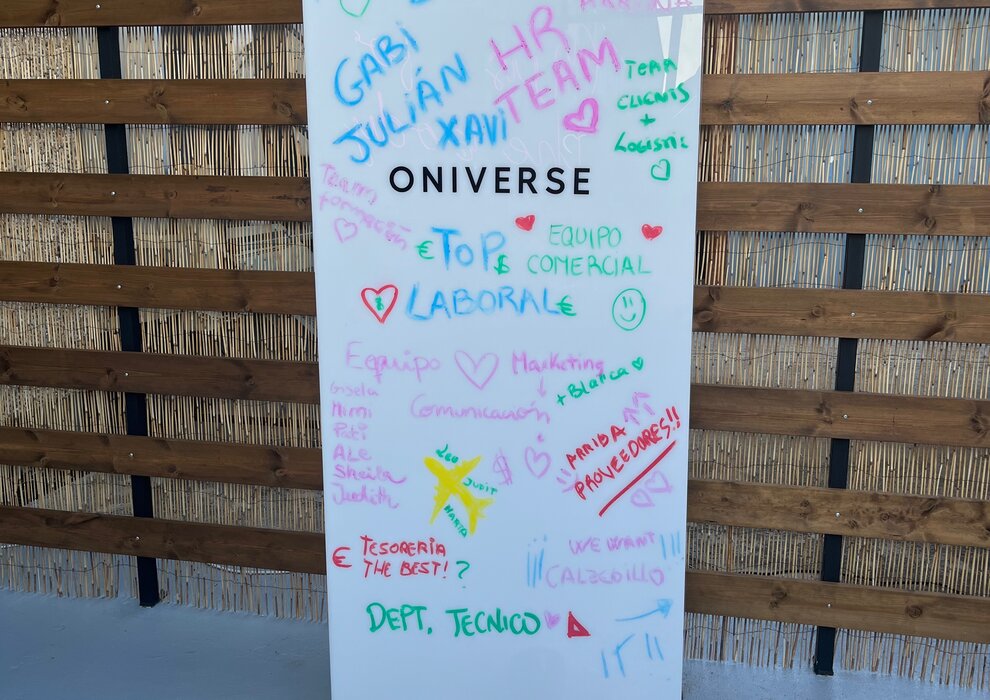 GABI
JULIÁN
XAVI
HR
TEAM
TEAM
CLIENTS
+
LOGISTIC
ONIVERSE
Team
formación
€ TOP $
LABORAL €
EQUIPO
COMERCIAL
Equipo Marketing
+ Blanca
Comunicación
Gisela
Mimi
Pati
ALE
Sheila
Judith
LEO
JUDIT
MARTA
$
ARRIBA
PROVEEDORES!!
€ TESORERIA
THE BEST! ?
!!! WE WANT !!!
CALZEDILLO
DEPT. TECNICO
IT !!